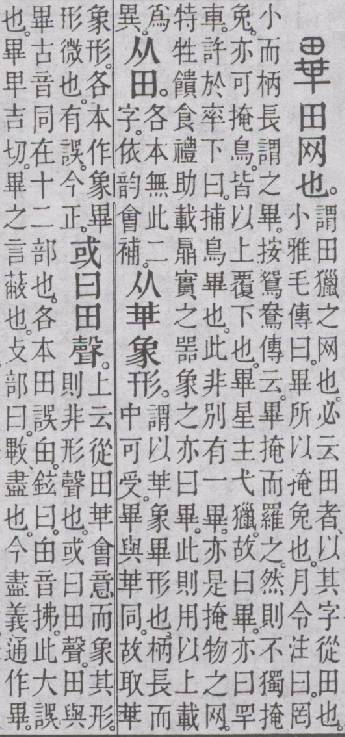 畢 田网也。謂田獵之网也。必云田者。以其字從田也。
小雅毛傳曰。畢所以掩兔也。月令注曰。罔
小而柄長謂之畢。按鴛鴦傳云。畢掩而羅之。然則不獨掩
兔。亦可掩鳥。皆以上覆下也。畢星主弋獵。故曰畢。亦曰罕
車。許於率下曰。捕鳥畢也。此非別有一畢。亦是掩物之网。
特牲饋食禮助載鼎實之器象之。亦曰畢。此則用以上載
爲
異。
从田。
各本無此二
字。依韵會補。
从𠦒象形。
謂以𠦒象畢形也。柄長而
中可受。畢與𠦒同。故取𠦒
象形。各本作象畢
形微也。有誤。今正。
或曰田聲。
上云從田𠦒會意而象其形。
則非形聲也。或曰田聲。田與
畢古音同在十二部也。各本田誤甶。鉉曰。甶音拂。此大誤
也。畢卑吉切。畢之言蔽也。攴部曰。㪤盡也。今盡義通作畢